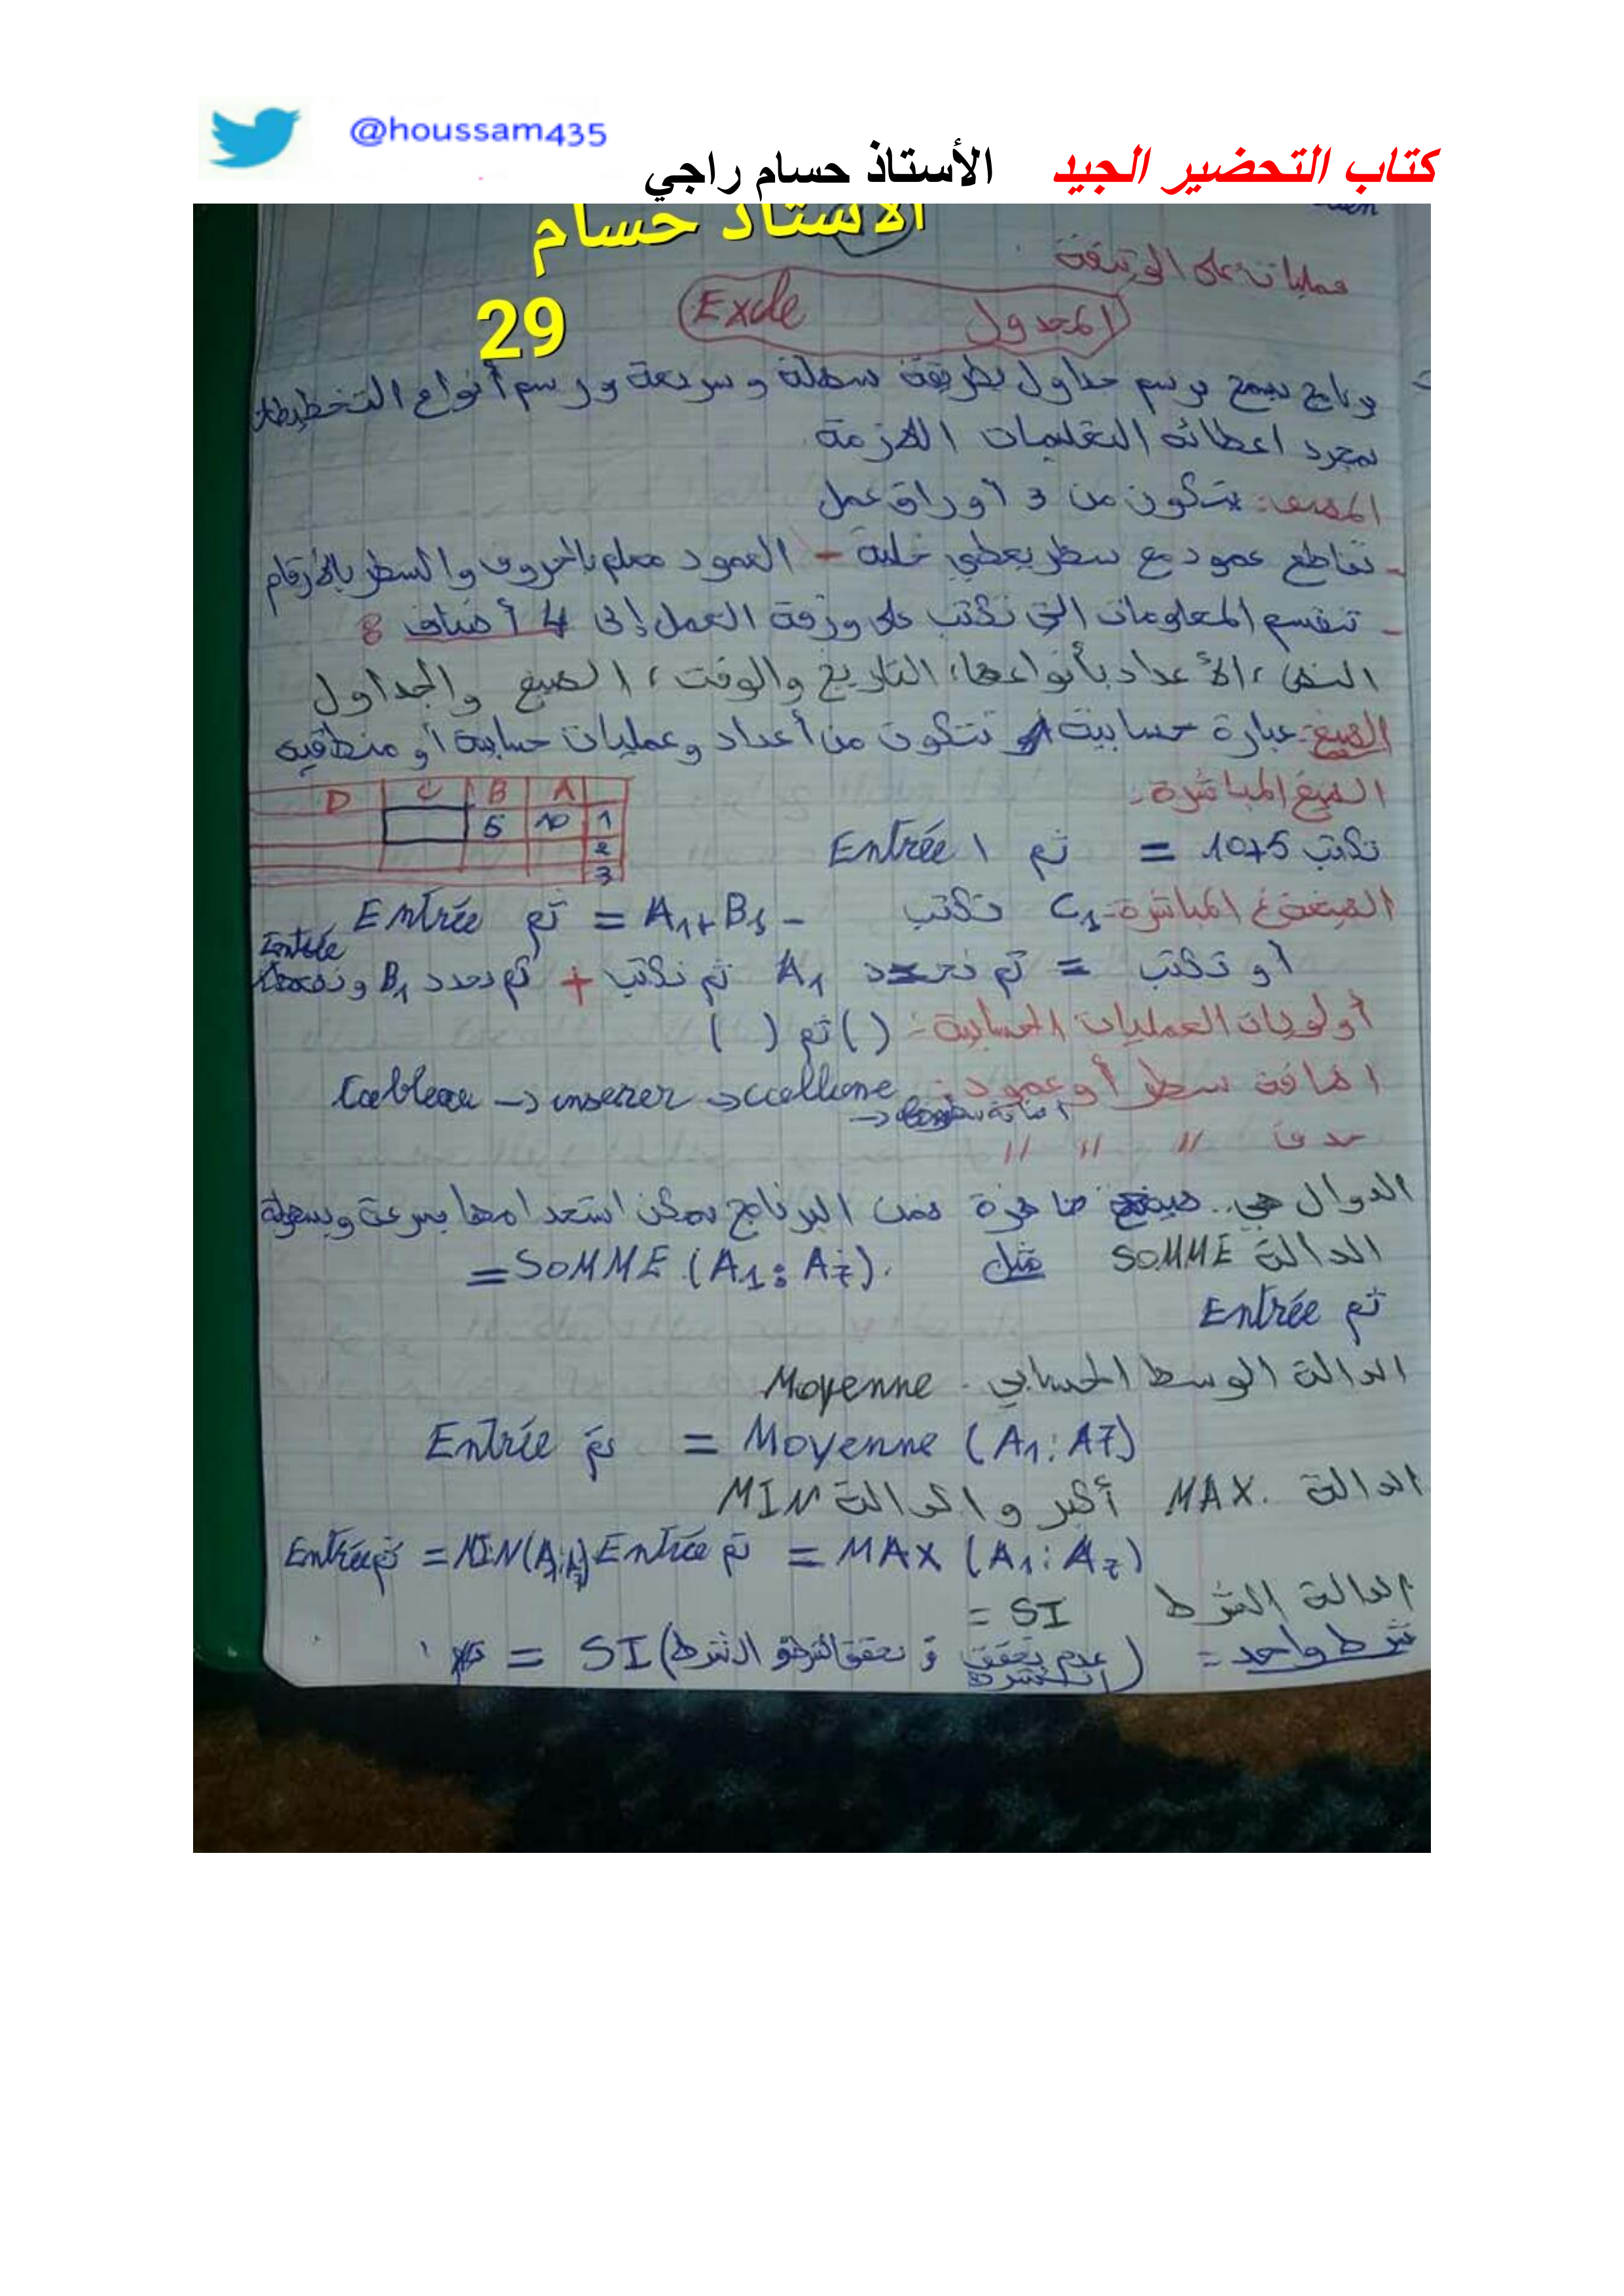 @houssam435
كتاب التحضير الجيد الأستاذ حسام راجي
الأستاذ حسام
29
عمليات على الوثيقة
المجدول Excle
برنامج يسمح برسم جداول بطريقة سهلة وسريعة ورسم أنواع التخطيطات
بمجرد اعطائه التعليمات اللازمة
المصنف: يتكون من 3 أوراق عمل
- تقاطع عمود مع سطر يعطي خلية - العمود معلم بالحروف والسطر بالأرقام
- تنقسم المعلومات التي تكتب على ورقة العمل إلى 4 أصناف 8
النص، الأعداد بأنواعها، التاريخ والوقت، الصيغ والجداول
الصيغ: عبارة حسابية تتكون من أعداد وعمليات حسابية أو منطقية
الصيغ المباشرة:
D C B A
5 10 1
2
3
نكتب 10+5 = ثم Entrée
الصيغ غ المباشرة: C1 نكتب - = A1+B1 ثم Entrée
أو نكتب = ثم نحدد A1 ثم نكتب + ثم نحدد B1 و Entrée
أولويات العمليات الحسابية: ( ) ثم ( )
اضافة سطر أو عمود: Tableau → inserer → collone
→ اضافة سطر
حذف // // //
الدوال هي.. صيغ جاهزة ضمن البرنامج يمكن استعدامها بسرعة وبسهولة
الدالة SOMME مثل =SOMME (A1:A7).
ثم Entrée
الدالة الوسط الحسابي - Moyenne
= Moyenne (A1:A7) ثم Entrée
الدالة MAX. أكبر والدالة MIN
= MAX (A1:A7) ثم Entrée =MIN(A1:A7) ثم Entrée
الدالة الشرط SI =
شرط واحد = (عدم تحقق الشرط و تحقق الشرط و الشرط) SI =